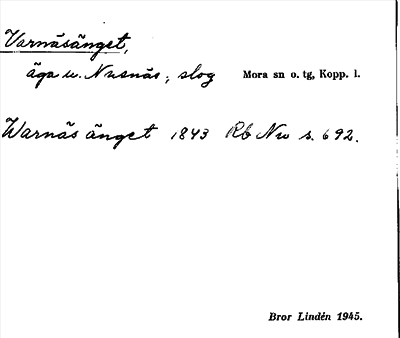 Varnäsänget,
äga u. Nusnäs; slog Mora sn o. tg, Kopp. l.
Warnäs änget 1843 Rb Nu s. 692.
Bror Lindén 1945.